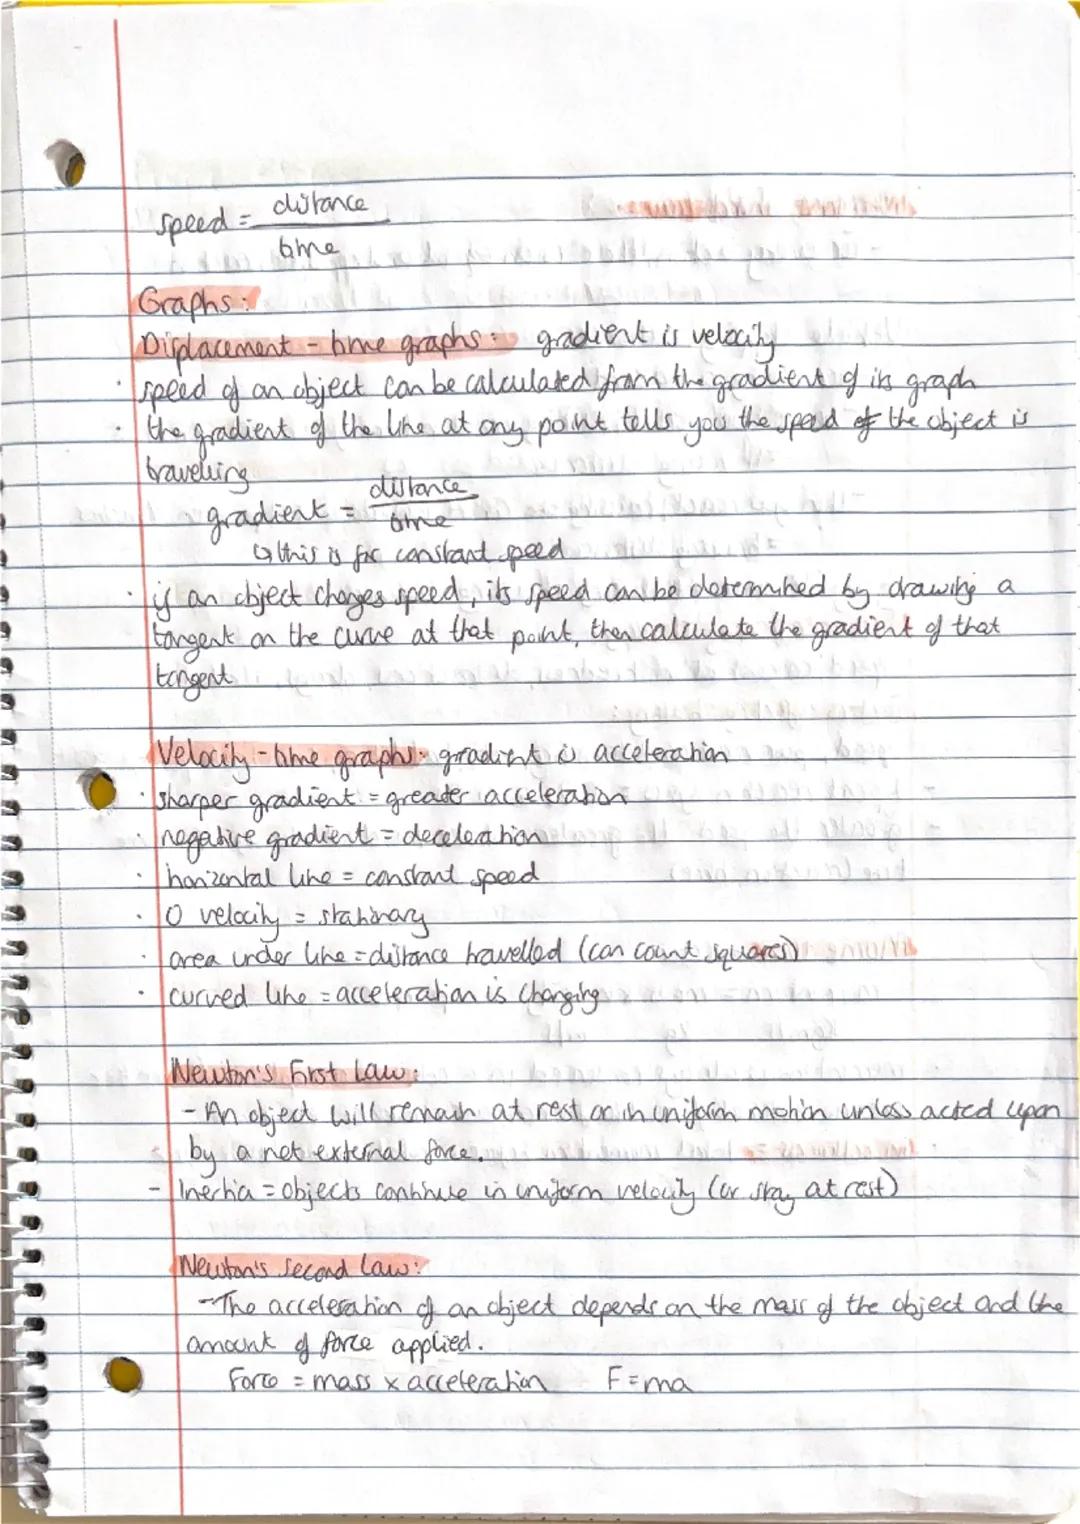 speed = distance
time
Graphs:
Displacement - time graphs: gradient is velocity
· speed of an object can be calculated from the gradient of its graph
· the gradient of the line at any point tells you the speed of the object is
travelling
gradient = distance
time
↳ this is for constant speed
· if an object changes speed, its speed can be determined by drawing a
tangent on the curve at that point, then calculate the gradient of that
tangent
Velocity - time graphs: gradient is acceleration
· sharper gradient = greater acceleration
· negative gradient = deceleration
· horizontal line = constant speed
· 0 velocity = stationary
· area under line = distance travelled (can count squares)
· curved line = acceleration is changing
Newton's First Law:
- An object will remain at rest or in uniform motion unless acted upon
by a net external force.
- Inertia = objects continue in uniform velocity (or stay at rest)
Newton's Second Law:
- The acceleration of an object depends on the mass of the object and the
amount of force applied.
Force = mass x acceleration F=ma